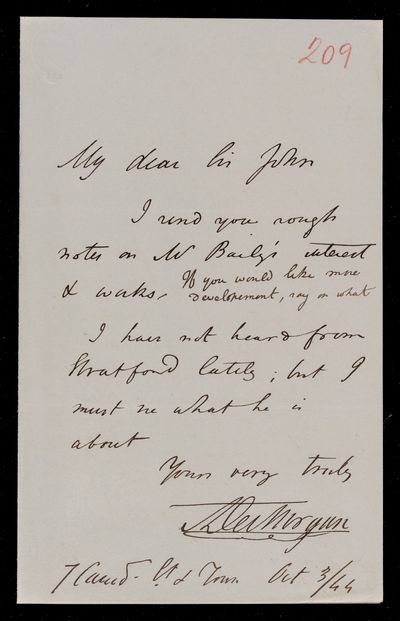 209
My dear Sir John
I send you rough
notes on Mr Baily's interest
& works. If you would like more
developement, say on what
I have not heard from
Stratford lately; but I
must see what he is
about
Yours very truly
ADeMorgan
7 Camd. St & Town Oct 3/44